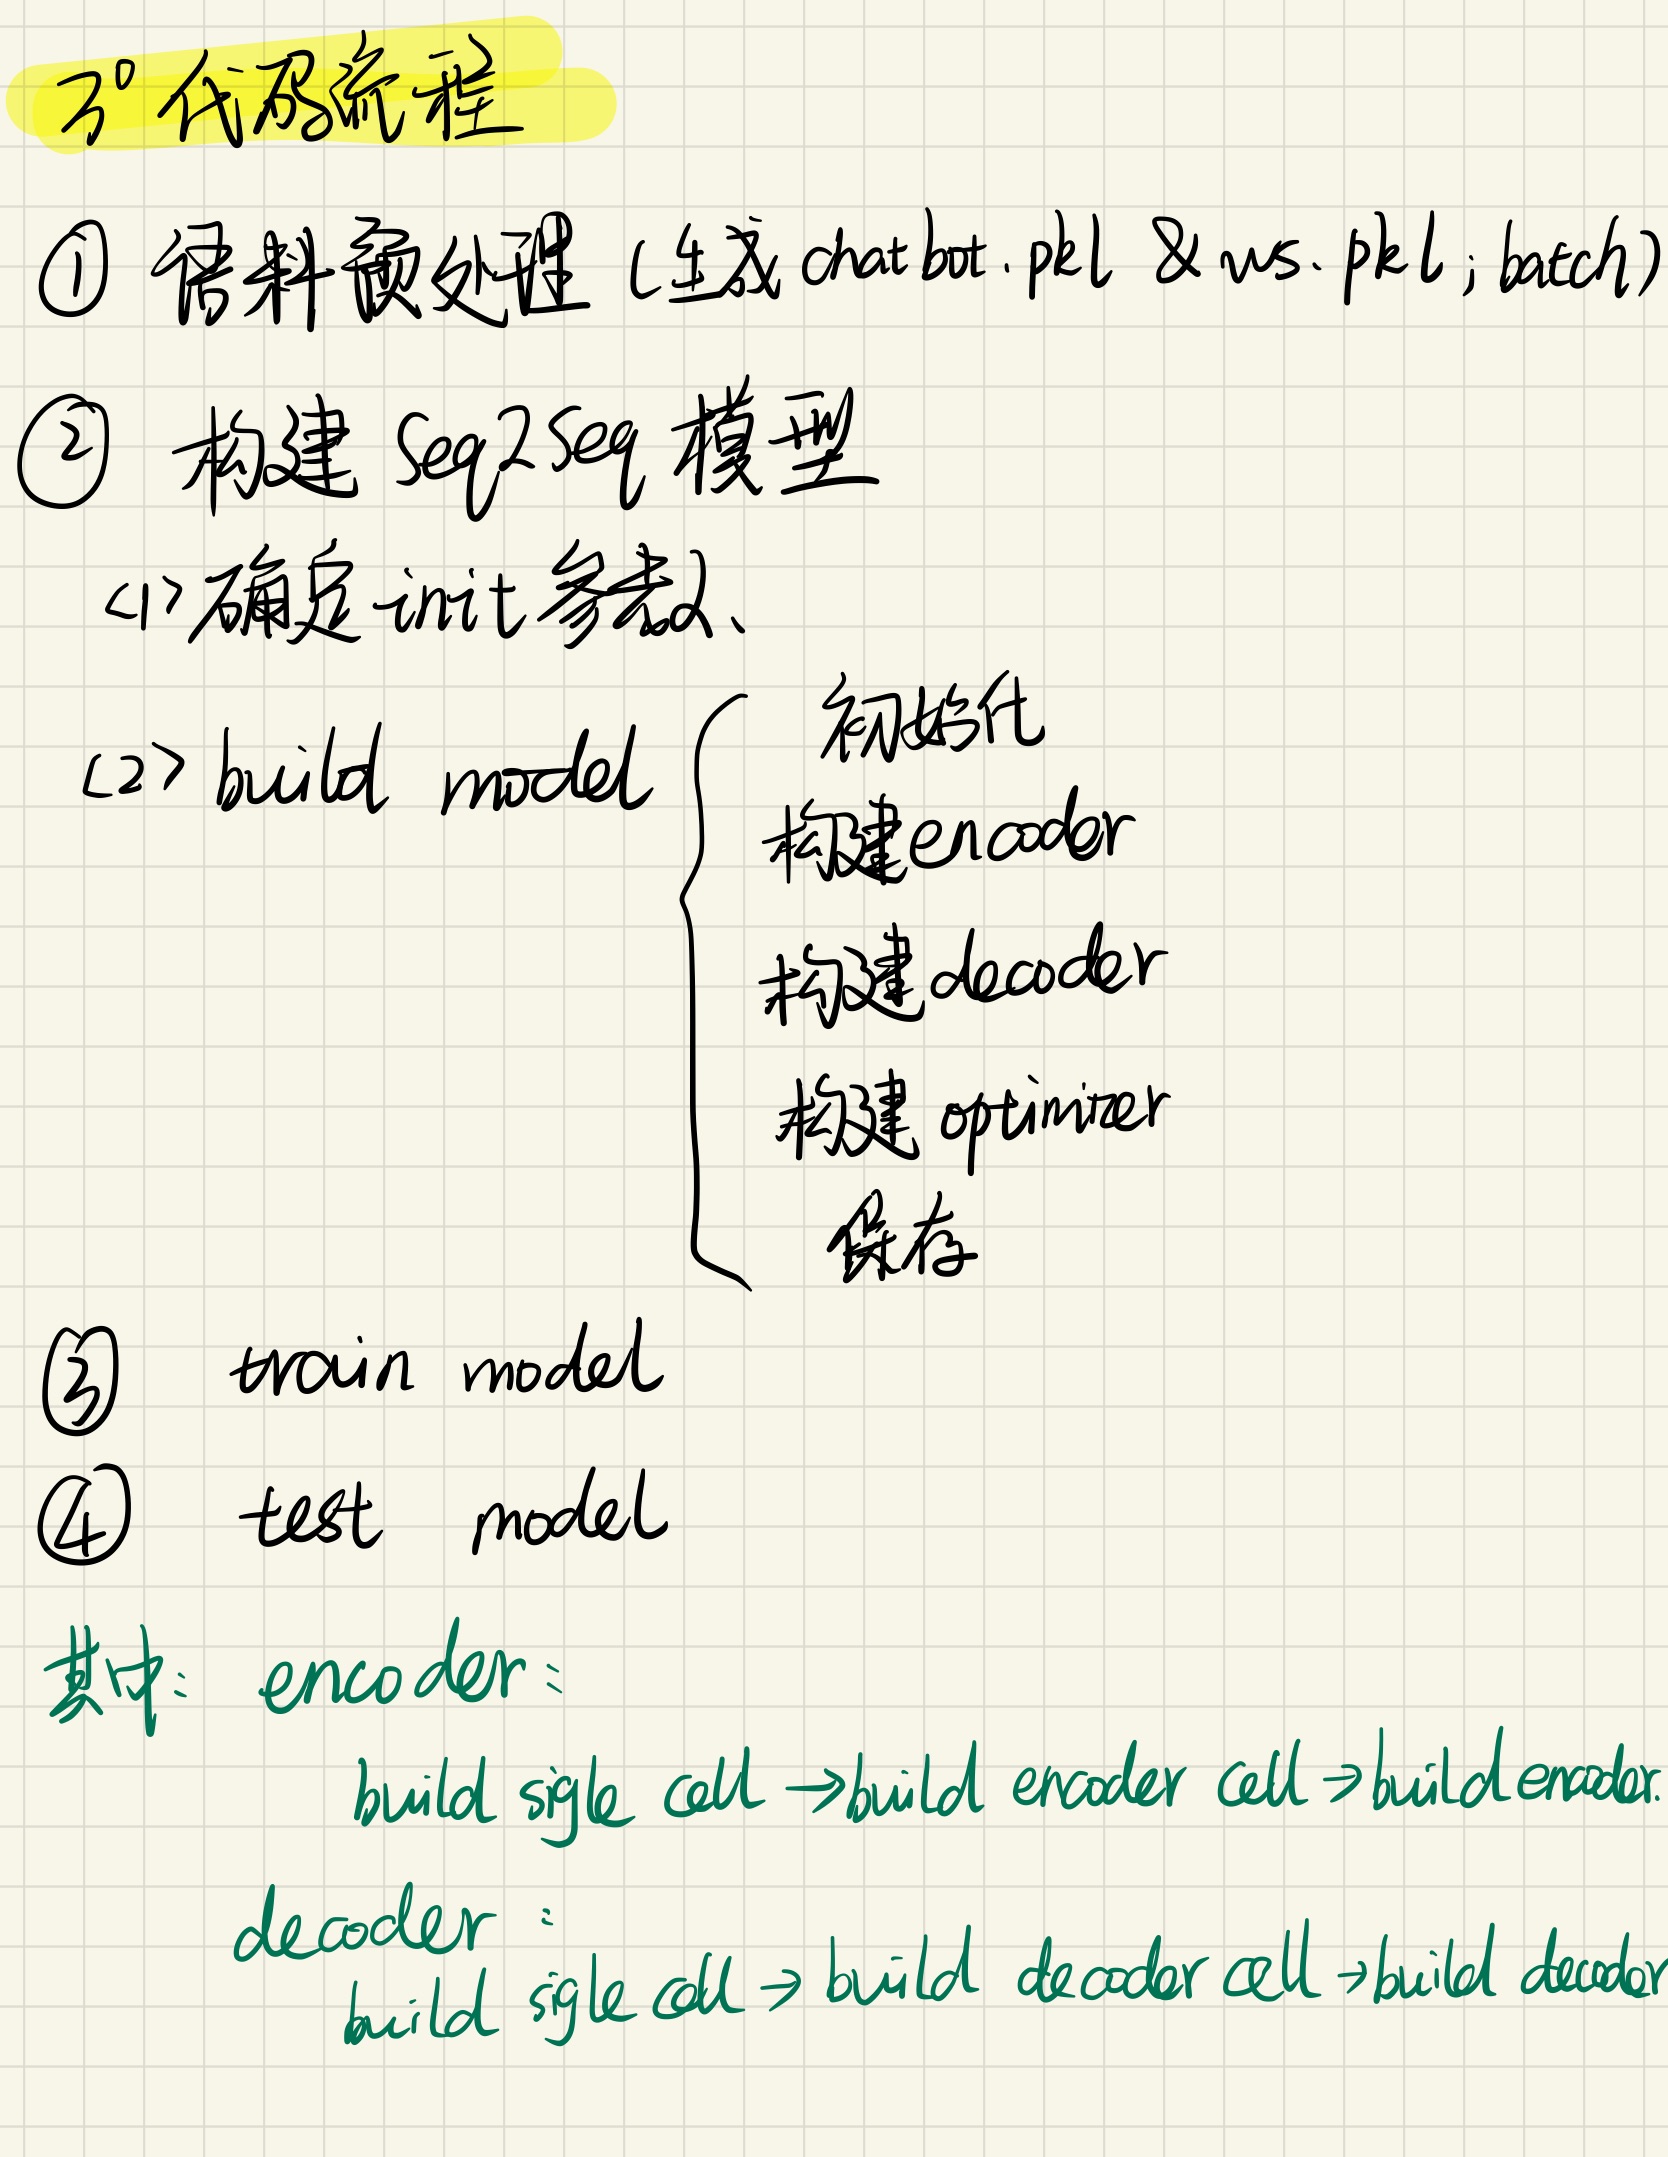 3° 代码流程
① 语料预处理 (生成 chatbot.pkl & ws.pkl ; batch)
② 构建 Seq2Seq 模型
<1> 确定 init 参数、
<2> build model
初始化
构建encoder
构建decoder
构建 optimizer
保存
③ train model
④ test model
其中: encoder:
build sigle cell →build encoder cell →build encoder.
decoder :
build sigle cell → build decoder cell →build decoder